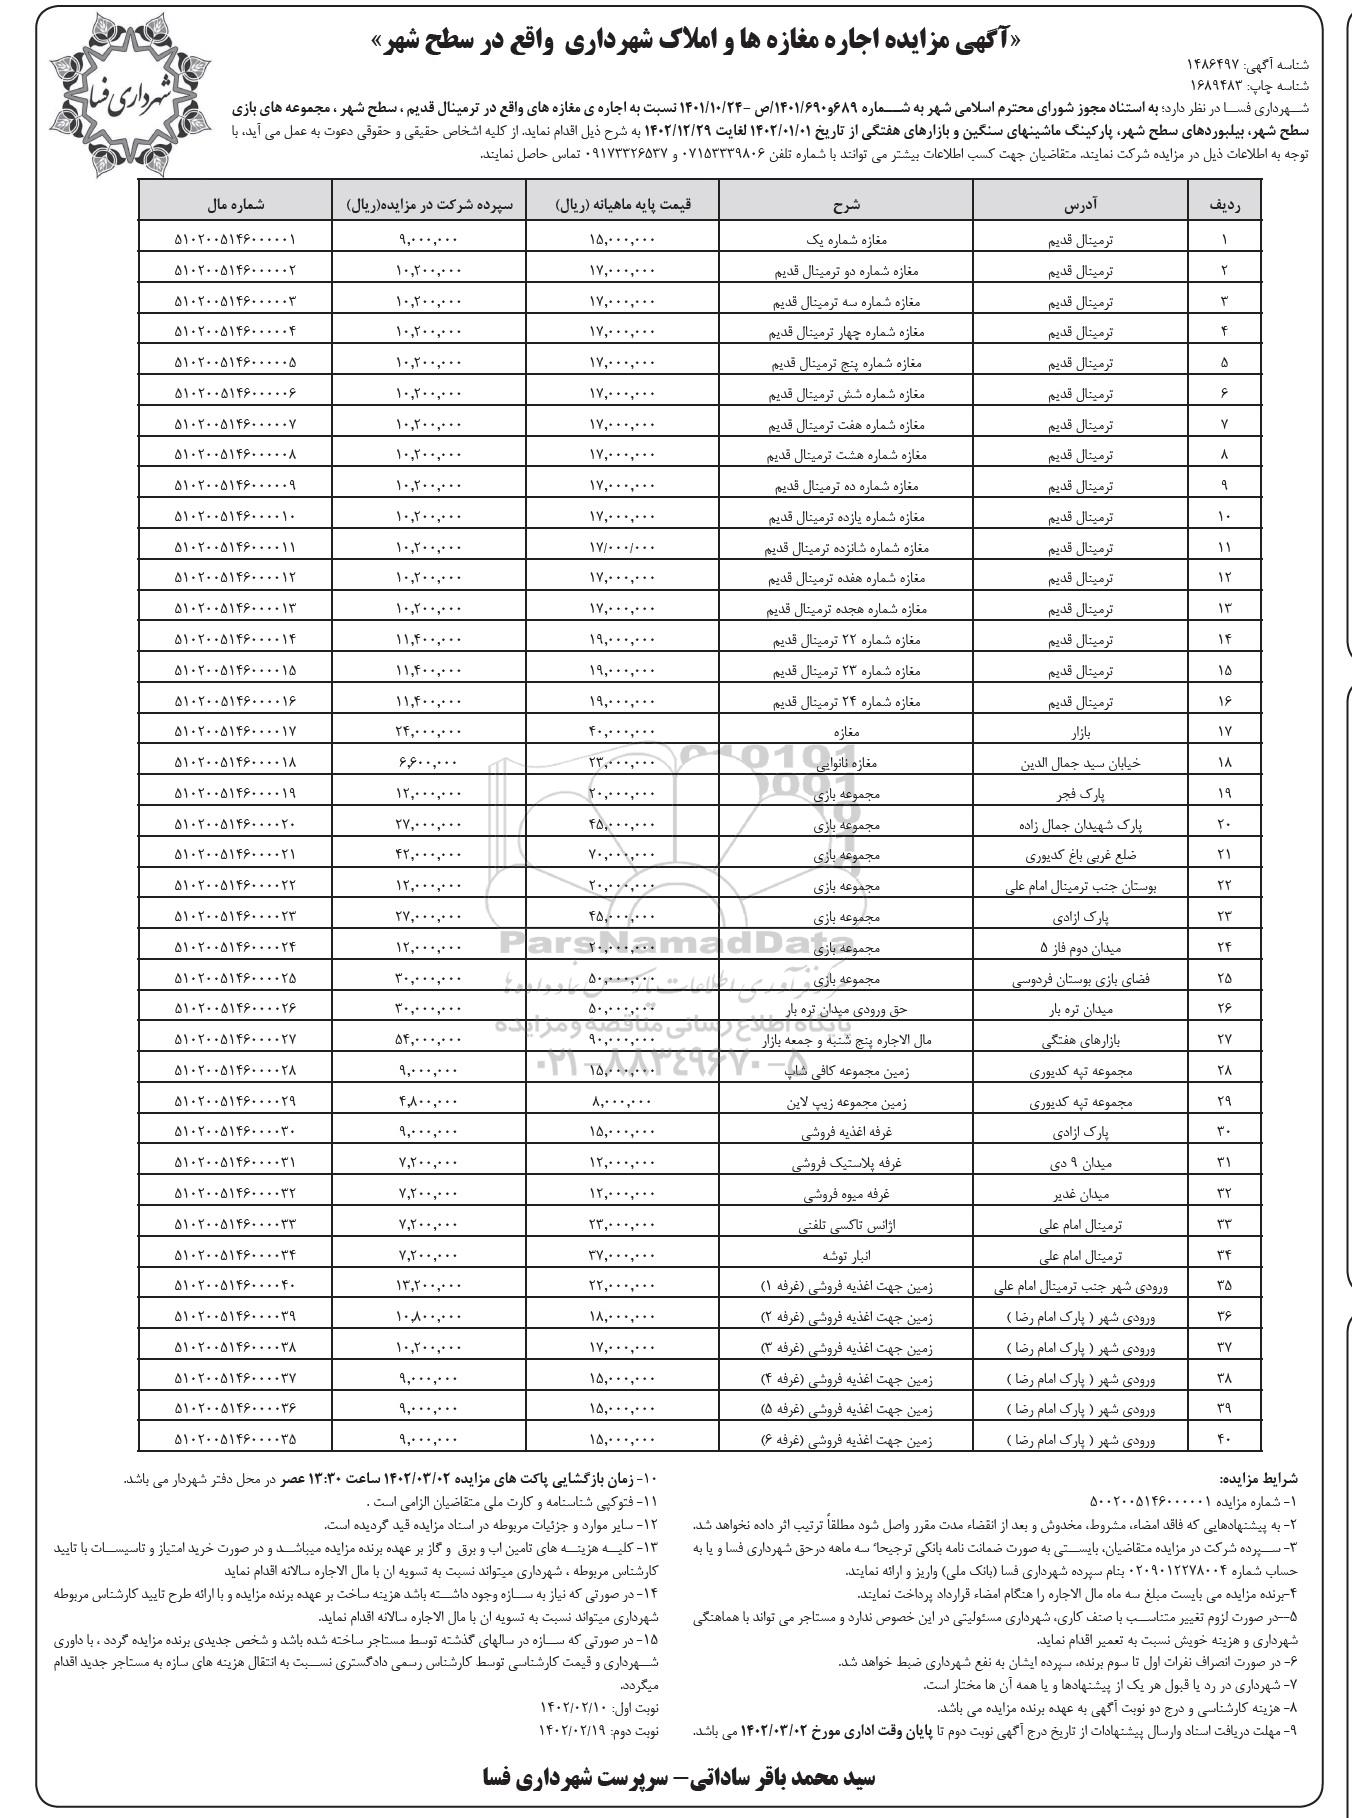 «آگهی مزایده اجاره مغازه ها و املاک شهرداری واقع در سطح شهر»
شهرداری فسا
شناسه آگهی: ۱۴۸۶۴۹۷
شناسه چاپ: ۱۶۸۹۴۸۳
شهرداری فسا در نظر دارد؛ به استناد مجوز شورای محترم اسلامی شهر به شماره ۶۸۹و۱۴۰۱/۶۹۰/ص -۱۴۰۱/۱۰/۲۴ نسبت به اجاره ی مغازه های واقع در ترمینال قدیم ، سطح شهر ، مجموعه های بازی
سطح شهر، بیلبوردهای سطح شهر، پارکینگ ماشینهای سنگین و بازارهای هفتگی از تاریخ ۱۴۰۲/۰۱/۰۱ لغایت ۱۴۰۲/۱۲/۲۹ به شرح ذیل اقدام نماید. از کلیه اشخاص حقیقی و حقوقی دعوت به عمل می آید، با
توجه به اطلاعات ذیل در مزایده شرکت نمایند. متقاضیان جهت کسب اطلاعات بیشتر می توانند با شماره تلفن ۰۷۱۵۳۳۳۹۸۰۶ و ۰۹۱۷۳۳۲۶۵۳۷ تماس حاصل نمایند.
ردیف آدرس شرح قیمت پایه ماهیانه (ریال) سپرده شرکت در مزایده(ریال) شماره مال
۱ ترمینال قدیم مغازه شماره یک ۱۵,۰۰۰,۰۰۰ ۹,۰۰۰,۰۰۰ ۵۱۰۲۰۰۵۱۴۶۰۰۰۰۰۱
۲ ترمینال قدیم مغازه شماره دو ترمینال قدیم ۱۷,۰۰۰,۰۰۰ ۱۰,۲۰۰,۰۰۰ ۵۱۰۲۰۰۵۱۴۶۰۰۰۰۰۲
۳ ترمینال قدیم مغازه شماره سه ترمینال قدیم ۱۷,۰۰۰,۰۰۰ ۱۰,۲۰۰,۰۰۰ ۵۱۰۲۰۰۵۱۴۶۰۰۰۰۰۳
۴ ترمینال قدیم مغازه شماره چهار ترمینال قدیم ۱۷,۰۰۰,۰۰۰ ۱۰,۲۰۰,۰۰۰ ۵۱۰۲۰۰۵۱۴۶۰۰۰۰۰۴
۵ ترمینال قدیم مغازه شماره پنج ترمینال قدیم ۱۷,۰۰۰,۰۰۰ ۱۰,۲۰۰,۰۰۰ ۵۱۰۲۰۰۵۱۴۶۰۰۰۰۰۵
۶ ترمینال قدیم مغازه شماره شش ترمینال قدیم ۱۷,۰۰۰,۰۰۰ ۱۰,۲۰۰,۰۰۰ ۵۱۰۲۰۰۵۱۴۶۰۰۰۰۰۶
۷ ترمینال قدیم مغازه شماره هفت ترمینال قدیم ۱۷,۰۰۰,۰۰۰ ۱۰,۲۰۰,۰۰۰ ۵۱۰۲۰۰۵۱۴۶۰۰۰۰۰۷
۸ ترمینال قدیم مغازه شماره هشت ترمینال قدیم ۱۷,۰۰۰,۰۰۰ ۱۰,۲۰۰,۰۰۰ ۵۱۰۲۰۰۵۱۴۶۰۰۰۰۰۸
۹ ترمینال قدیم مغازه شماره ده ترمینال قدیم ۱۷,۰۰۰,۰۰۰ ۱۰,۲۰۰,۰۰۰ ۵۱۰۲۰۰۵۱۴۶۰۰۰۰۰۹
۱۰ ترمینال قدیم مغازه شماره یازده ترمینال قدیم ۱۷,۰۰۰,۰۰۰ ۱۰,۲۰۰,۰۰۰ ۵۱۰۲۰۰۵۱۴۶۰۰۰۰۱۰
۱۱ ترمینال قدیم مغازه شماره شانزده ترمینال قدیم ۱۷/۰۰۰/۰۰۰ ۱۰,۲۰۰,۰۰۰ ۵۱۰۲۰۰۵۱۴۶۰۰۰۰۱۱
۱۲ ترمینال قدیم مغازه شماره هفده ترمینال قدیم ۱۷,۰۰۰,۰۰۰ ۱۰,۲۰۰,۰۰۰ ۵۱۰۲۰۰۵۱۴۶۰۰۰۰۱۲
۱۳ ترمینال قدیم مغازه شماره هجده ترمینال قدیم ۱۷,۰۰۰,۰۰۰ ۱۰,۲۰۰,۰۰۰ ۵۱۰۲۰۰۵۱۴۶۰۰۰۰۱۳
۱۴ ترمینال قدیم مغازه شماره ۲۲ ترمینال قدیم ۱۹,۰۰۰,۰۰۰ ۱۱,۴۰۰,۰۰۰ ۵۱۰۲۰۰۵۱۴۶۰۰۰۰۱۴
۱۵ ترمینال قدیم مغازه شماره ۲۳ ترمینال قدیم ۱۹,۰۰۰,۰۰۰ ۱۱,۴۰۰,۰۰۰ ۵۱۰۲۰۰۵۱۴۶۰۰۰۰۱۵
۱۶ ترمینال قدیم مغازه شماره ۲۴ ترمینال قدیم ۱۹,۰۰۰,۰۰۰ ۱۱,۴۰۰,۰۰۰ ۵۱۰۲۰۰۵۱۴۶۰۰۰۰۱۶
۱۷ بازار مغازه ۴۰,۰۰۰,۰۰۰ ۲۴,۰۰۰,۰۰۰ ۵۱۰۲۰۰۵۱۴۶۰۰۰۰۱۷
۱۸ خیابان سید جمال الدین مغازه نانوایی ۲۳,۰۰۰,۰۰۰ ۶,۶۰۰,۰۰۰ ۵۱۰۲۰۰۵۱۴۶۰۰۰۰۱۸
۱۹ پارک فجر مجموعه بازی ۲۰,۰۰۰,۰۰۰ ۱۲,۰۰۰,۰۰۰ ۵۱۰۲۰۰۵۱۴۶۰۰۰۰۱۹
۲۰ پارک شهیدان جمال زاده مجموعه بازی ۴۵,۰۰۰,۰۰۰ ۲۷,۰۰۰,۰۰۰ ۵۱۰۲۰۰۵۱۴۶۰۰۰۰۲۰
۲۱ ضلع غربی باغ کدیوری مجموعه بازی ۷۰,۰۰۰,۰۰۰ ۴۲,۰۰۰,۰۰۰ ۵۱۰۲۰۰۵۱۴۶۰۰۰۰۲۱
۲۲ بوستان جنب ترمینال امام علی مجموعه بازی ۲۰,۰۰۰,۰۰۰ ۱۲,۰۰۰,۰۰۰ ۵۱۰۲۰۰۵۱۴۶۰۰۰۰۲۲
۲۳ پارک ازادی مجموعه بازی ۴۵,۰۰۰,۰۰۰ ۲۷,۰۰۰,۰۰۰ ۵۱۰۲۰۰۵۱۴۶۰۰۰۰۲۳
۲۴ میدان دوم فاز ۵ مجموعه بازی ۲۰,۰۰۰,۰۰۰ ۱۲,۰۰۰,۰۰۰ ۵۱۰۲۰۰۵۱۴۶۰۰۰۰۲۴
۲۵ فضای بازی بوستان فردوسی مجموعه بازی ۵۰,۰۰۰,۰۰۰ ۳۰,۰۰۰,۰۰۰ ۵۱۰۲۰۰۵۱۴۶۰۰۰۰۲۵
۲۶ میدان تره بار حق ورودی میدان تره بار ۵۰,۰۰۰,۰۰۰ ۳۰,۰۰۰,۰۰۰ ۵۱۰۲۰۰۵۱۴۶۰۰۰۰۲۶
۲۷ بازارهای هفتگی مال الاجاره پنج شنبه و جمعه بازار ۹۰,۰۰۰,۰۰۰ ۵۴,۰۰۰,۰۰۰ ۵۱۰۲۰۰۵۱۴۶۰۰۰۰۲۷
۲۸ مجموعه تپه کدیوری زمین مجموعه کافی شاپ ۱۵,۰۰۰,۰۰۰ ۹,۰۰۰,۰۰۰ ۵۱۰۲۰۰۵۱۴۶۰۰۰۰۲۸
۲۹ مجموعه تپه کدیوری زمین مجموعه زیپ لاین ۸,۰۰۰,۰۰۰ ۴,۸۰۰,۰۰۰ ۵۱۰۲۰۰۵۱۴۶۰۰۰۰۲۹
۳۰ پارک ازادی غرفه اغذیه فروشی ۱۵,۰۰۰,۰۰۰ ۹,۰۰۰,۰۰۰ ۵۱۰۲۰۰۵۱۴۶۰۰۰۰۳۰
۳۱ میدان ۹ دی غرفه پلاستیک فروشی ۱۲,۰۰۰,۰۰۰ ۷,۲۰۰,۰۰۰ ۵۱۰۲۰۰۵۱۴۶۰۰۰۰۳۱
۳۲ میدان غدیر غرفه میوه فروشی ۱۲,۰۰۰,۰۰۰ ۷,۲۰۰,۰۰۰ ۵۱۰۲۰۰۵۱۴۶۰۰۰۰۳۲
۳۳ ترمینال امام علی اژانس تاکسی تلفنی ۲۳,۰۰۰,۰۰۰ ۷,۲۰۰,۰۰۰ ۵۱۰۲۰۰۵۱۴۶۰۰۰۰۳۳
۳۴ ترمینال امام علی انبار توشه ۳۷,۰۰۰,۰۰۰ ۷,۲۰۰,۰۰۰ ۵۱۰۲۰۰۵۱۴۶۰۰۰۰۳۴
۳۵ ورودی شهر جنب ترمینال امام علی زمین جهت اغذیه فروشی (غرفه ۱) ۲۲,۰۰۰,۰۰۰ ۱۳,۲۰۰,۰۰۰ ۵۱۰۲۰۰۵۱۴۶۰۰۰۰۴۰
۳۶ ورودی شهر ( پارک امام رضا ) زمین جهت اغذیه فروشی (غرفه ۲) ۱۸,۰۰۰,۰۰۰ ۱۰,۸۰۰,۰۰۰ ۵۱۰۲۰۰۵۱۴۶۰۰۰۰۳۹
۳۷ ورودی شهر ( پارک امام رضا ) زمین جهت اغذیه فروشی (غرفه ۳) ۱۷,۰۰۰,۰۰۰ ۱۰,۲۰۰,۰۰۰ ۵۱۰۲۰۰۵۱۴۶۰۰۰۰۳۸
۳۸ ورودی شهر ( پارک امام رضا ) زمین جهت اغذیه فروشی (غرفه ۴) ۱۵,۰۰۰,۰۰۰ ۹,۰۰۰,۰۰۰ ۵۱۰۲۰۰۵۱۴۶۰۰۰۰۳۷
۳۹ ورودی شهر ( پارک امام رضا ) زمین جهت اغذیه فروشی (غرفه ۵) ۱۵,۰۰۰,۰۰۰ ۹,۰۰۰,۰۰۰ ۵۱۰۲۰۰۵۱۴۶۰۰۰۰۳۶
۴۰ ورودی شهر ( پارک امام رضا ) زمین جهت اغذیه فروشی (غرفه ۶) ۱۵,۰۰۰,۰۰۰ ۹,۰۰۰,۰۰۰ ۵۱۰۲۰۰۵۱۴۶۰۰۰۰۳۵
ParsNamadData
پایگاه اطلاع رسانی مناقصه و مزایده
۰۲۱-۸۸۳۴۹۶۷۰-۵
شرایط مزایده:
۱- شماره مزایده ۵۰۰۲۰۰۵۱۴۶۰۰۰۰۰۱
۲- به پیشنهادهایی که فاقد امضاء، مشروط، مخدوش و بعد از انقضاء مدت مقرر واصل شود مطلقاً ترتیب اثر داده نخواهد شد.
۳- سپرده شرکت در مزایده متقاضیان، بایستی به صورت ضمانت نامه بانکی ترجیحاً سه ماهه درحق شهرداری فسا و یا به
حساب شماره ۰۲۰۹۰۱۲۲۷۸۰۰۴ بنام سپرده شهرداری فسا (بانک ملی) واریز و ارائه نمایند.
۴-برنده مزایده می بایست مبلغ سه ماه مال الاجاره را هنگام امضاء قرارداد پرداخت نمایند.
۵--در صورت لزوم تغییر متناسب با صنف کاری، شهرداری مسئولیتی در این خصوص ندارد و مستاجر می تواند با هماهنگی
شهرداری و هزینه خویش نسبت به تعمیر اقدام نماید.
۶- در صورت انصراف نفرات اول تا سوم برنده، سپرده ایشان به نفع شهرداری ضبط خواهد شد.
۷- شهرداری در رد یا قبول هر یک از پیشنهادها و یا همه آن ها مختار است.
۸- هزینه کارشناسی و درج دو نوبت آگهی به عهده برنده مزایده می باشد.
۹- مهلت دریافت اسناد وارسال پیشنهادات از تاریخ درج آگهی نوبت دوم تا پایان وقت اداری مورخ ۱۴۰۲/۰۳/۰۲ می باشد.
۱۰- زمان بازگشایی پاکت های مزایده ۱۴۰۲/۰۳/۰۲ ساعت ۱۳:۳۰ عصر در محل دفتر شهردار می باشد.
۱۱- فتوکپی شناسنامه و کارت ملی متقاضیان الزامی است .
۱۲- سایر موارد و جزئیات مربوطه در اسناد مزایده قید گردیده است.
۱۳- کلیه هزینه های تامین اب و برق و گاز بر عهده برنده مزایده میباشد و در صورت خرید امتیاز و تاسیسات با تایید
کارشناس مربوطه ، شهرداری میتواند نسبت به تسویه ان با مال الاجاره سالانه اقدام نماید
۱۴- در صورتی که نیاز به سازه وجود داشته باشد هزینه ساخت بر عهده برنده مزایده و با ارائه طرح تایید کارشناس مربوطه
شهرداری میتواند نسبت به تسویه ان با مال الاجاره سالانه اقدام نماید.
۱۵- در صورتی که سازه در سالهای گذشته توسط مستاجر ساخته شده باشد و شخص جدیدی برنده مزایده گردد ، با داوری
شهرداری و قیمت کارشناسی توسط کارشناس رسمی دادگستری نسبت به انتقال هزینه های سازه به مستاجر جدید اقدام
میگردد.
نوبت اول: ۱۴۰۲/۰۲/۱۰
نوبت دوم: ۱۴۰۲/۰۲/۱۹
سید محمد باقر ساداتی- سرپرست شهرداری فسا